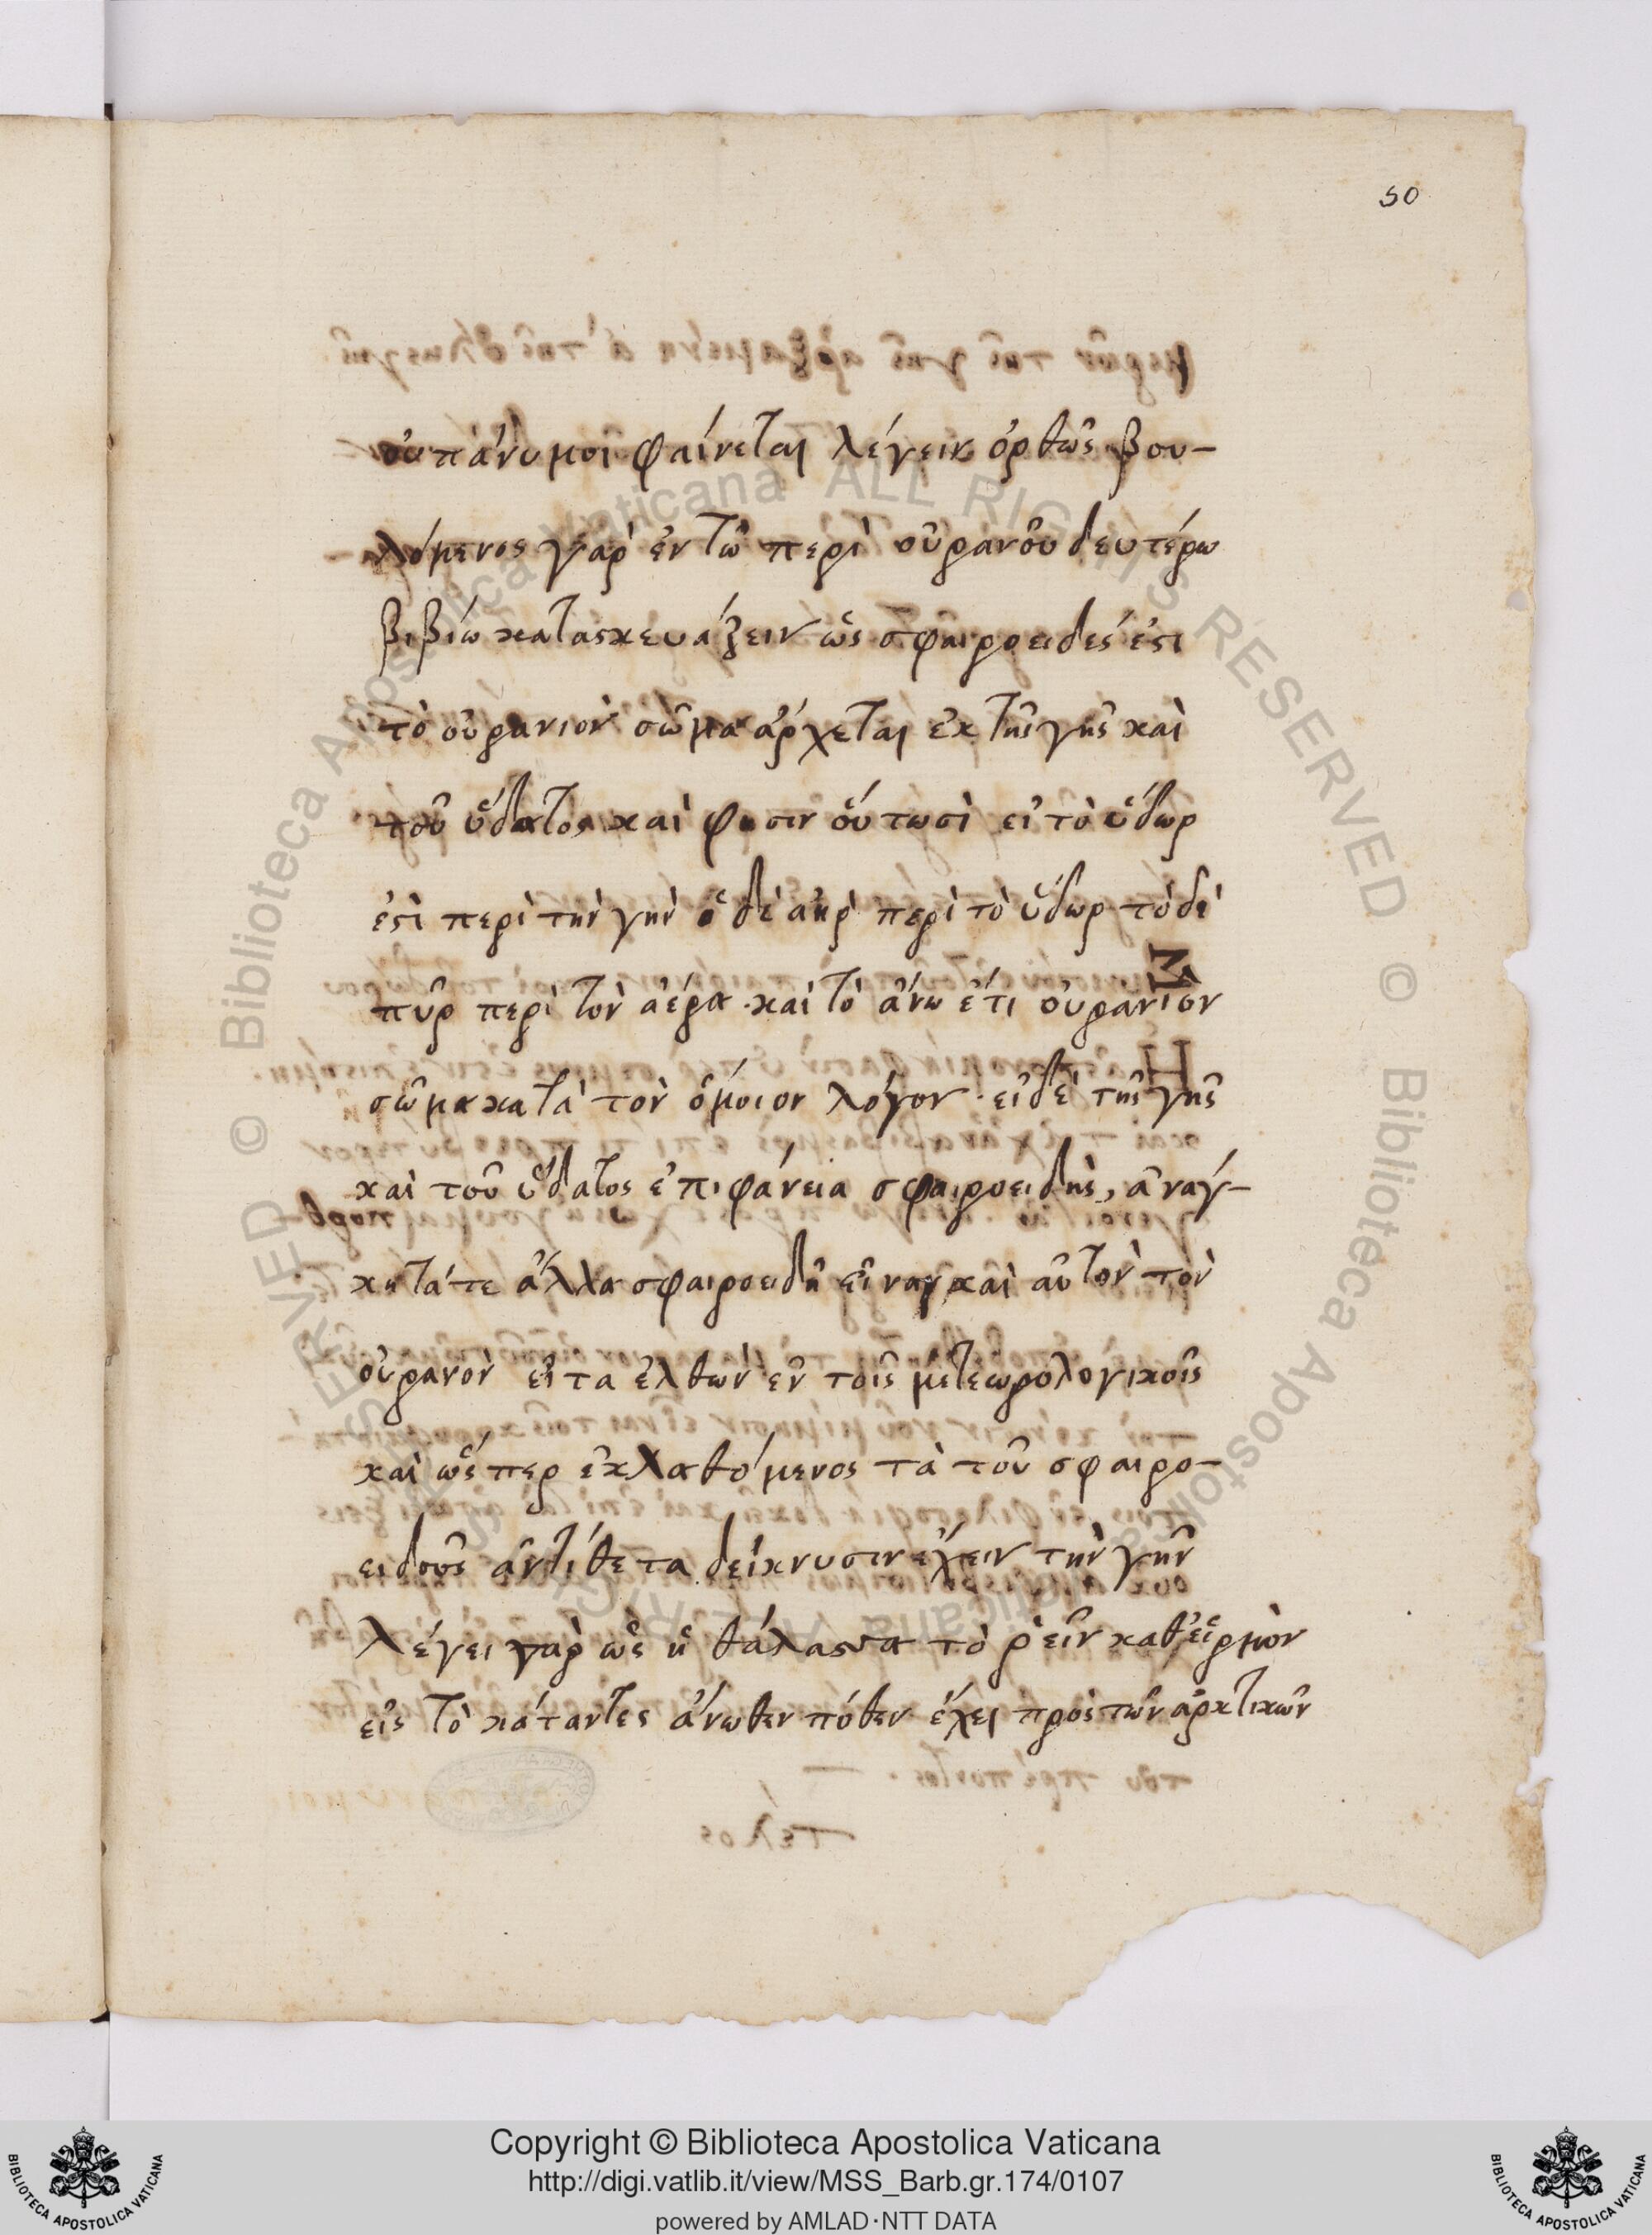 50
οὐ πάνυ μοι φαίνεται λέγειν ὀρθῶς βου-
λόμενος γὰρ ἐν τῶ περὶ οὐρανοῦ δευτέρω
βιβίω κατασκευάζειν ὡς σφαιροειδές ἐστι
τὸ οὐράνιον σῶμα ἄρχεται ἐκ τῆς γῆς καὶ
τοῦ ὕδατος καὶ φησιν οὕτωσὶ εἰ τὸ ὕδωρ
ἐστὶ περὶ τὴν γὴν ὁ δὲ ἀὴρ περὶ τὸ ὕδωρ τὸ δὲ
πῦρ περὶ τὸν ἀέρα. καὶ τὸ ἄνω ἔτι οὐράνιον
σῶμα κατὰ τὸν ὅμοιον λόγον. εἰ δὲ τῆς γῆς
καὶ τοῦ ὕδατος ἐπιφάνεια σφαιροειδὴς, ἀνάγ-
κη τά τε ἄλλα σφαιροειδῆ εἶναι καὶ αὐτὸν τὸν
οὐρανὸν εἶτα ἐλθὼν ἐν τοῖς μετεωρολογικοῖς
καὶ ὥσπερ ἐκλαθόμενος τὰ τοῦ σφαιρο-
ειδοῦς ἀντίθετα δείκνυσιν ἔχειν τὴν γῆν
λέγει γὰρ ὡς ἡ θάλασσα τὸ ῥεῖν καθ' εἱρμὸν
εἰς τὸ κάταντες ἄνωθεν πόθεν ἔχει πρὸς τῶν ἀρκτικῶν
Copyright © Biblioteca Apostolica Vaticana
http://digi.vatlib.it/view/MSS_Barb.gr.174/0107
powered by AMLAD·NTT DATA